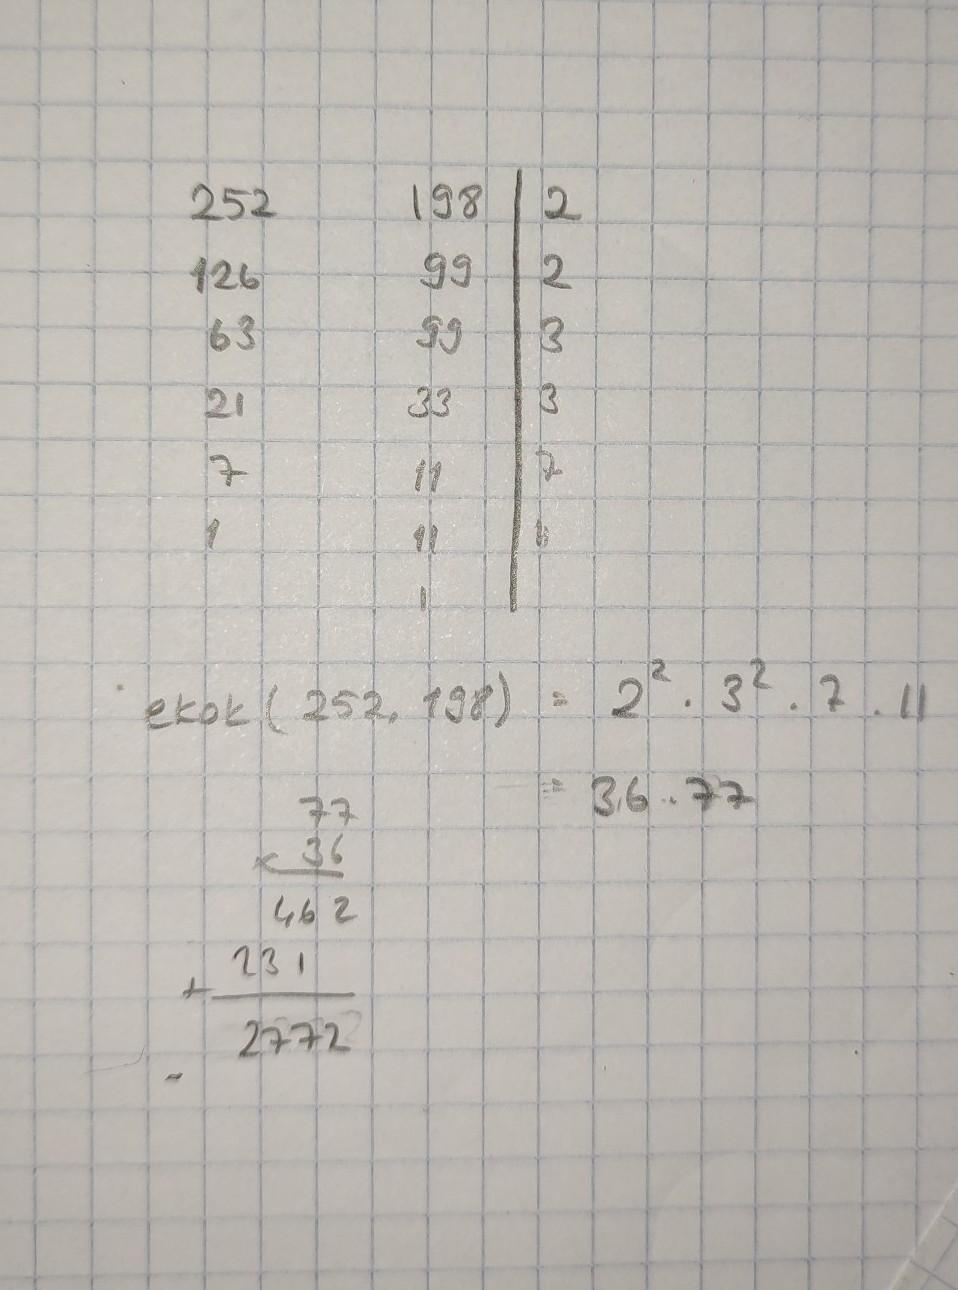 252 198 | 2
126 99 | 2
63 99 | 3
21 33 | 3
7 11 | 7
1 11 | 11
1
ekok(252, 198) = 2² . 3² . 7 . 11
= 36 . 77
77
x 36
462
+ 231
2772